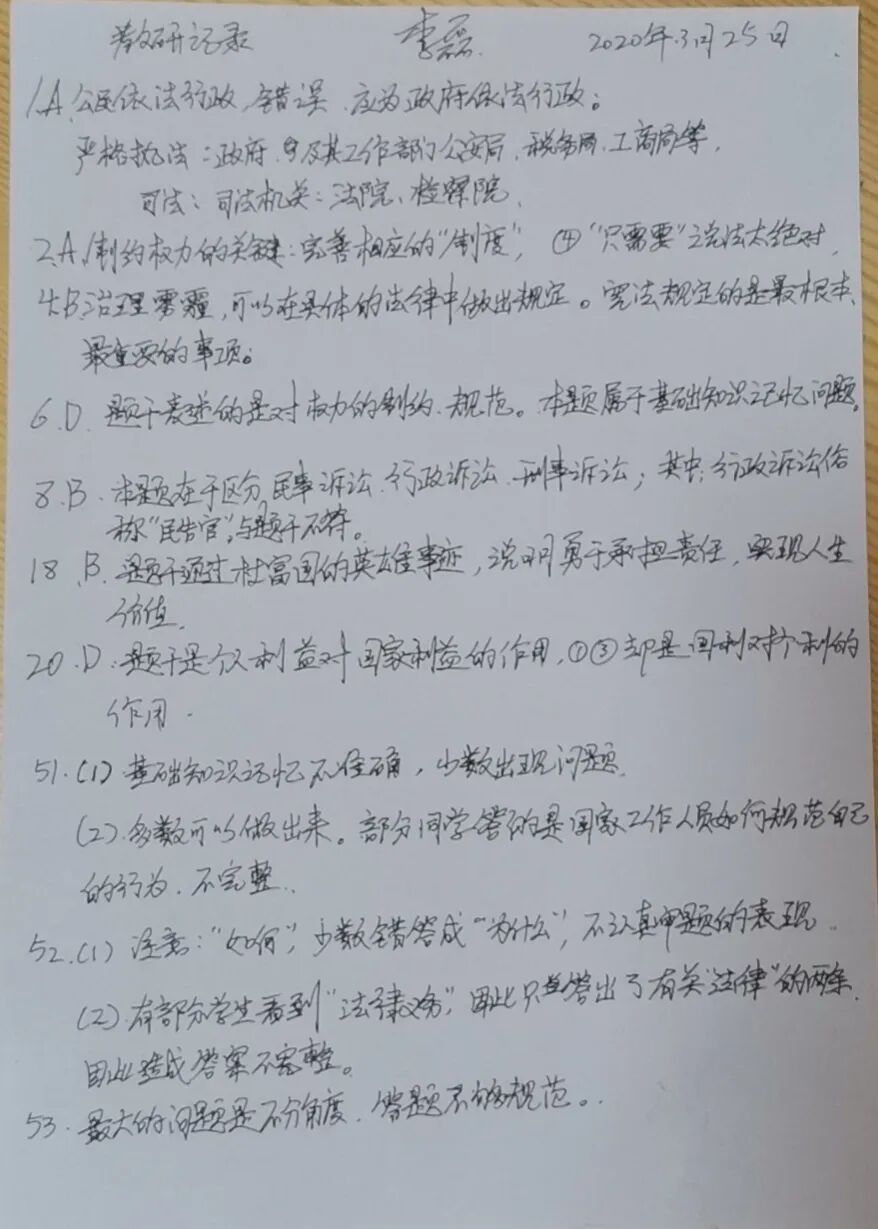 教研记录 李磊 2020年3月25日
1.A.公民依法行政,错误.应为政府依法行政。
严格执法:政府.及其工作部门公安局.税务局.工商局等.
司法:司法机关:法院、检察院.
2.A.制约权力的关键:完善相应的"制度",④"只需要"说法太绝对.
4.B.治理雾霾,可以在具体的法律中做出规定。宪法规定的是最根本、
最重要的事项。
6.D.题干表述的是对权力的制约.规范。本题属于基础知识记忆问题.
8.B.本题在于区分民事诉讼.行政诉讼.刑事诉讼;其中:行政诉讼俗
称"民告官",与题干不符。
18.B.题干通过杜富国的英雄事迹,说明勇于承担责任.实现人生
价值.
20.D.题干是个人利益对国家利益的作用.①③却是国利对个利的
作用.
51.(1)基础知识记忆不准确,少数出现问题.
(2).多数可以做出来。部分同学答的是国家工作人员如何规范自己
的行为.不完整.
52.(1)注意:"如何",少数错答成"为什么",不认真审题的表现.
(2).有部分学生看到"法律义务",因此只答出了有关"法律"的两条.
因此造成答案不完整。
53.最大的问题是不分角度.答题不够规范。